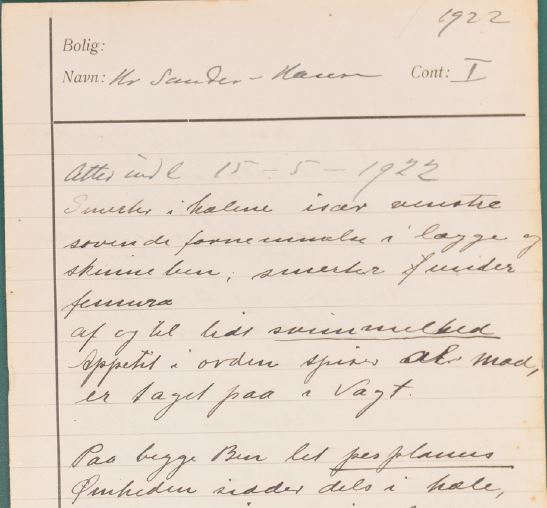 1922
Bolig:
Navn: Hr Sander-Hansen Cont: I
Atter indl 15-5-1922
Smerter i hælene især venstre
sovende fornemmelse i lægge og
skinneben, smerter under
femura
af og til lidt svimmelhed
Appetit i orden spiser al mad,
er taget paa i Vægt.
Paa begge Ben let pes planus
Ømheden sidder dels i hæle,